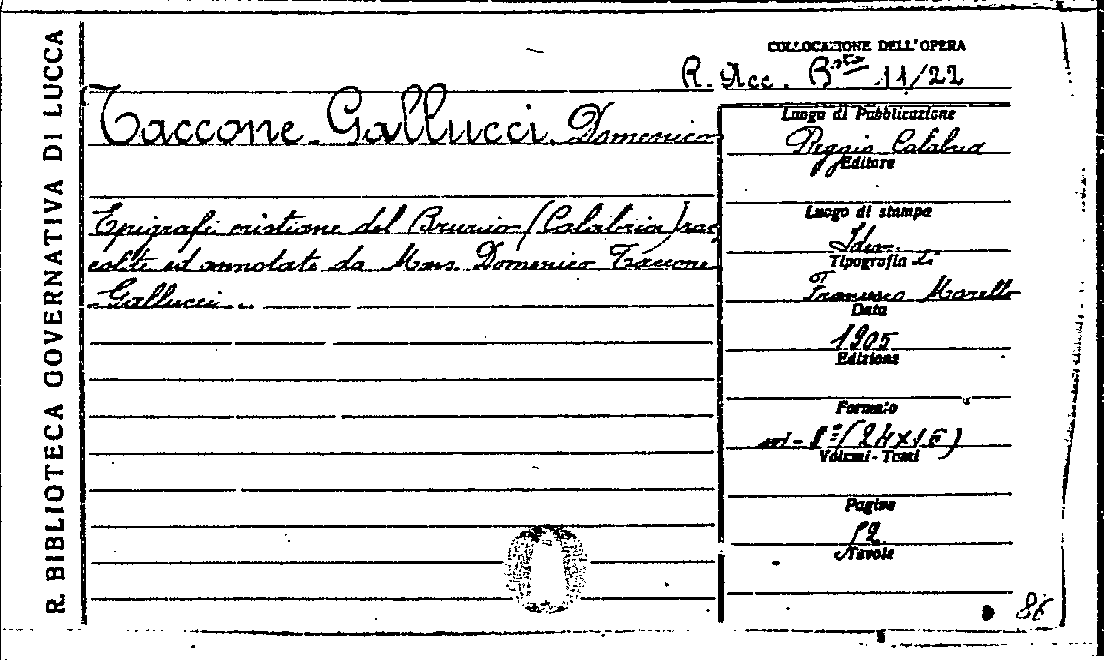 R. BIBLIOTECA GOVERNATIVA DI LUCCA
COLLOCAZIONE DELL'OPERA
R. Acc. Bsta 11/22
Taccone-Gallucci Domenico
Epigrafi cristiane del Bruzio (Calabria) rac
colte ed annotate da Mons. Domenico Taccone
Gallucci.
Luogo di Pubblicazione
Reggio Calabria
Editore
Luogo di stampa
Idem.
Tipografia
Francesco Morello
Data
1905
Edizione
Formato
in-8º (24x16)
Volumi - Tomi
Pagine
52
Tavole
86